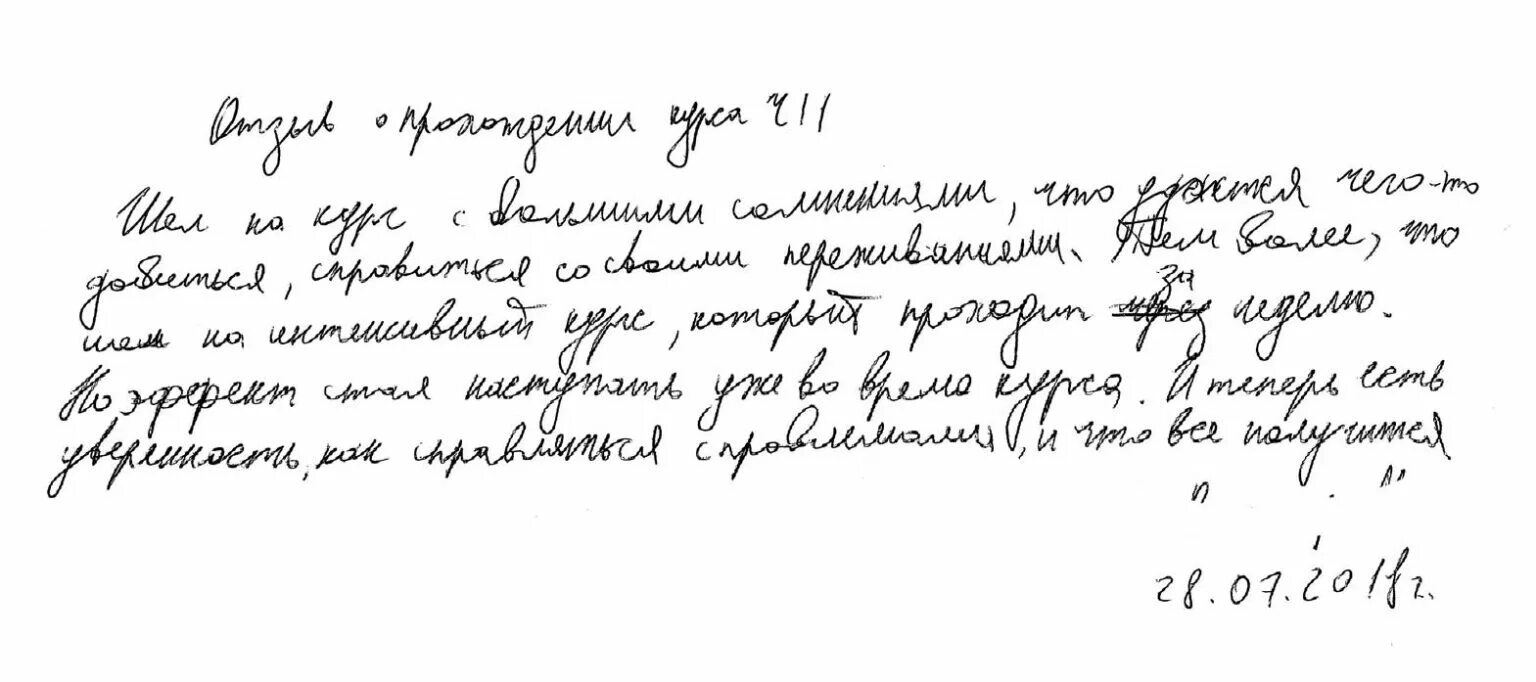 Отзыв о прохождении курса ЧИ
Шел на курс с большими сомнениями, что удастся чего-то
добиться, справиться со своими переживаниями. Тем более, что
шел на интенсивный курс, который проходит за неделю.
Но эффект стал наступать уже во время курса. И теперь есть
уверенность, как справляться с проблемами, и что все получится
28.07.2018г.